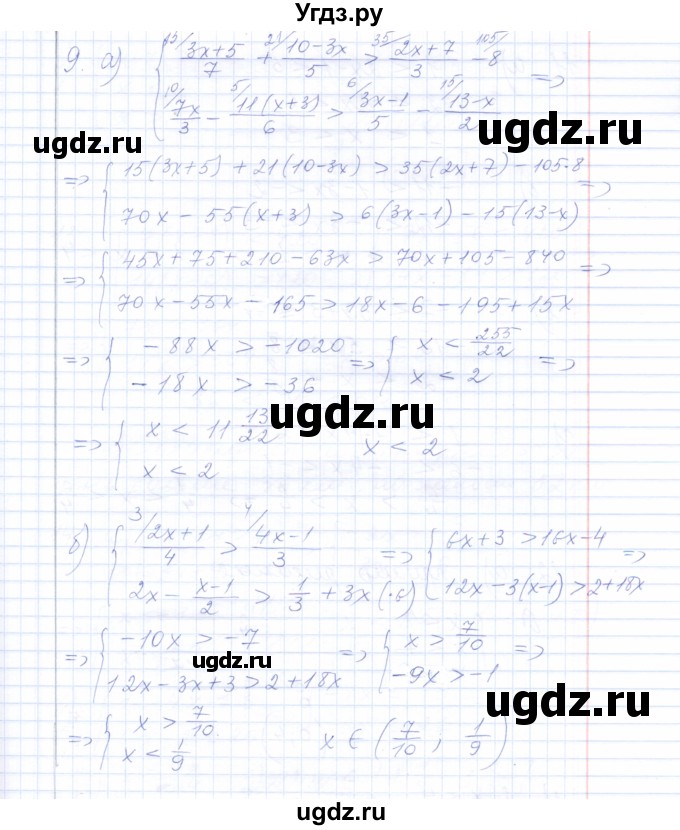 Угдз.ру
9. а) { 15/ (3x+5)/7 + 21/ (10-3x)/5 > 35/ (2x+7)/3 - 105/ 8
{ 10/ 7x/3 - 5/ 11(x+3)/6 > 6/ (3x-1)/5 - 15/ (13-x)/2 =>
ugdz.ru ugdz.ru ugdz.ru
=> { 15(3x+5) + 21(10-3x) > 35(2x+7) - 105·8
{ 70x - 55(x+3) > 6(3x-1) - 15(13-x) =>
=> { 45x + 75 + 210 - 63x > 70x + 105 - 840
{ 70x - 55x - 165 > 18x - 6 - 195 + 15x =>
=> { -88x > -1020
{ -18x > -36 => { x < 255/22
{ x < 2 =>
ugdz.ru
=> { x < 11 13/22
{ x < 2 x < 2
ugdz.ru ugdz.ru
б) { 3/ (2x+1)/4 > 4/ (4x-1)/3
{ 2x - (x-1)/2 > 1/3 + 3x (·6) => { 6x+3 > 16x-4
{ 12x - 3(x-1) > 2+18x =>
=> { -10x > -7
{ 12x - 3x + 3 > 2 + 18x => { x > 7/10
{ -9x > -1 =>
ugdz.ru
ugdz.ru ugdz.ru
=> { x > 7/10
{ x < 1/9 x ∈ (7/10 ; 1/9)
ugdz.ru